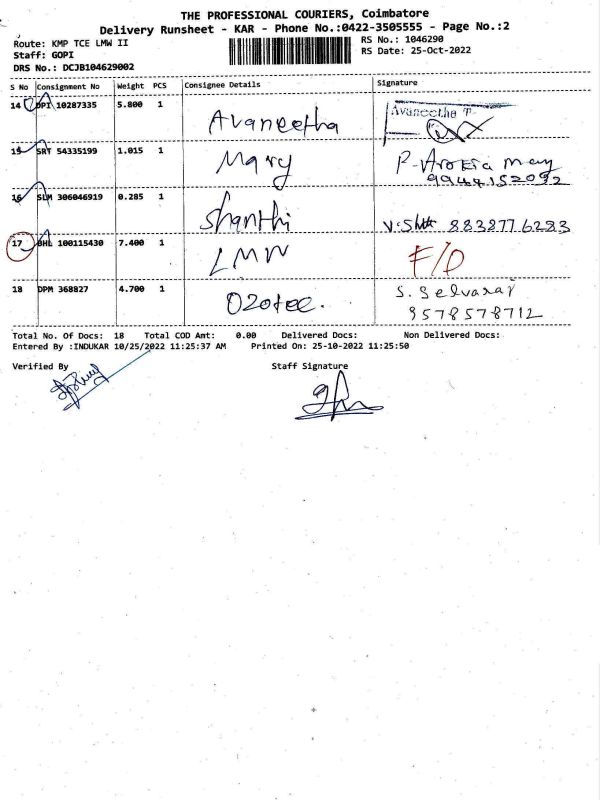 THE PROFESSIONAL COURIERS, Coimbatore
Delivery Runsheet - KAR - Phone No.:0422-3505555 - Page No.:2
Route: KMP TCE LMW II RS No.: 1046290
Staff: GOPI RS Date: 25-Oct-2022
DRS No.: DCJB104629002
S No Consignment No Weight PCS Consignee Details Signature
14 DPI 10287335 5.800 1 Avaneetha Avaneetha T
15 SRT 54335199 1.015 1 Mary P. Arokia mary
9944152092
16 SLM 306046919 0.285 1 Shanthi V. 8838776283
17 BHL 100115430 7.400 1 LMW F/D
18 DPM 368827 4.700 1 Ozotec. S. Selvaraj
9578578712
Total No. Of Docs: 18 Total COD Amt: 0.00 Delivered Docs: Non Delivered Docs:
Entered By :INDUKAR 10/25/2022 11:25:37 AM Printed On: 25-10-2022 11:25:50
Verified By Staff Signature